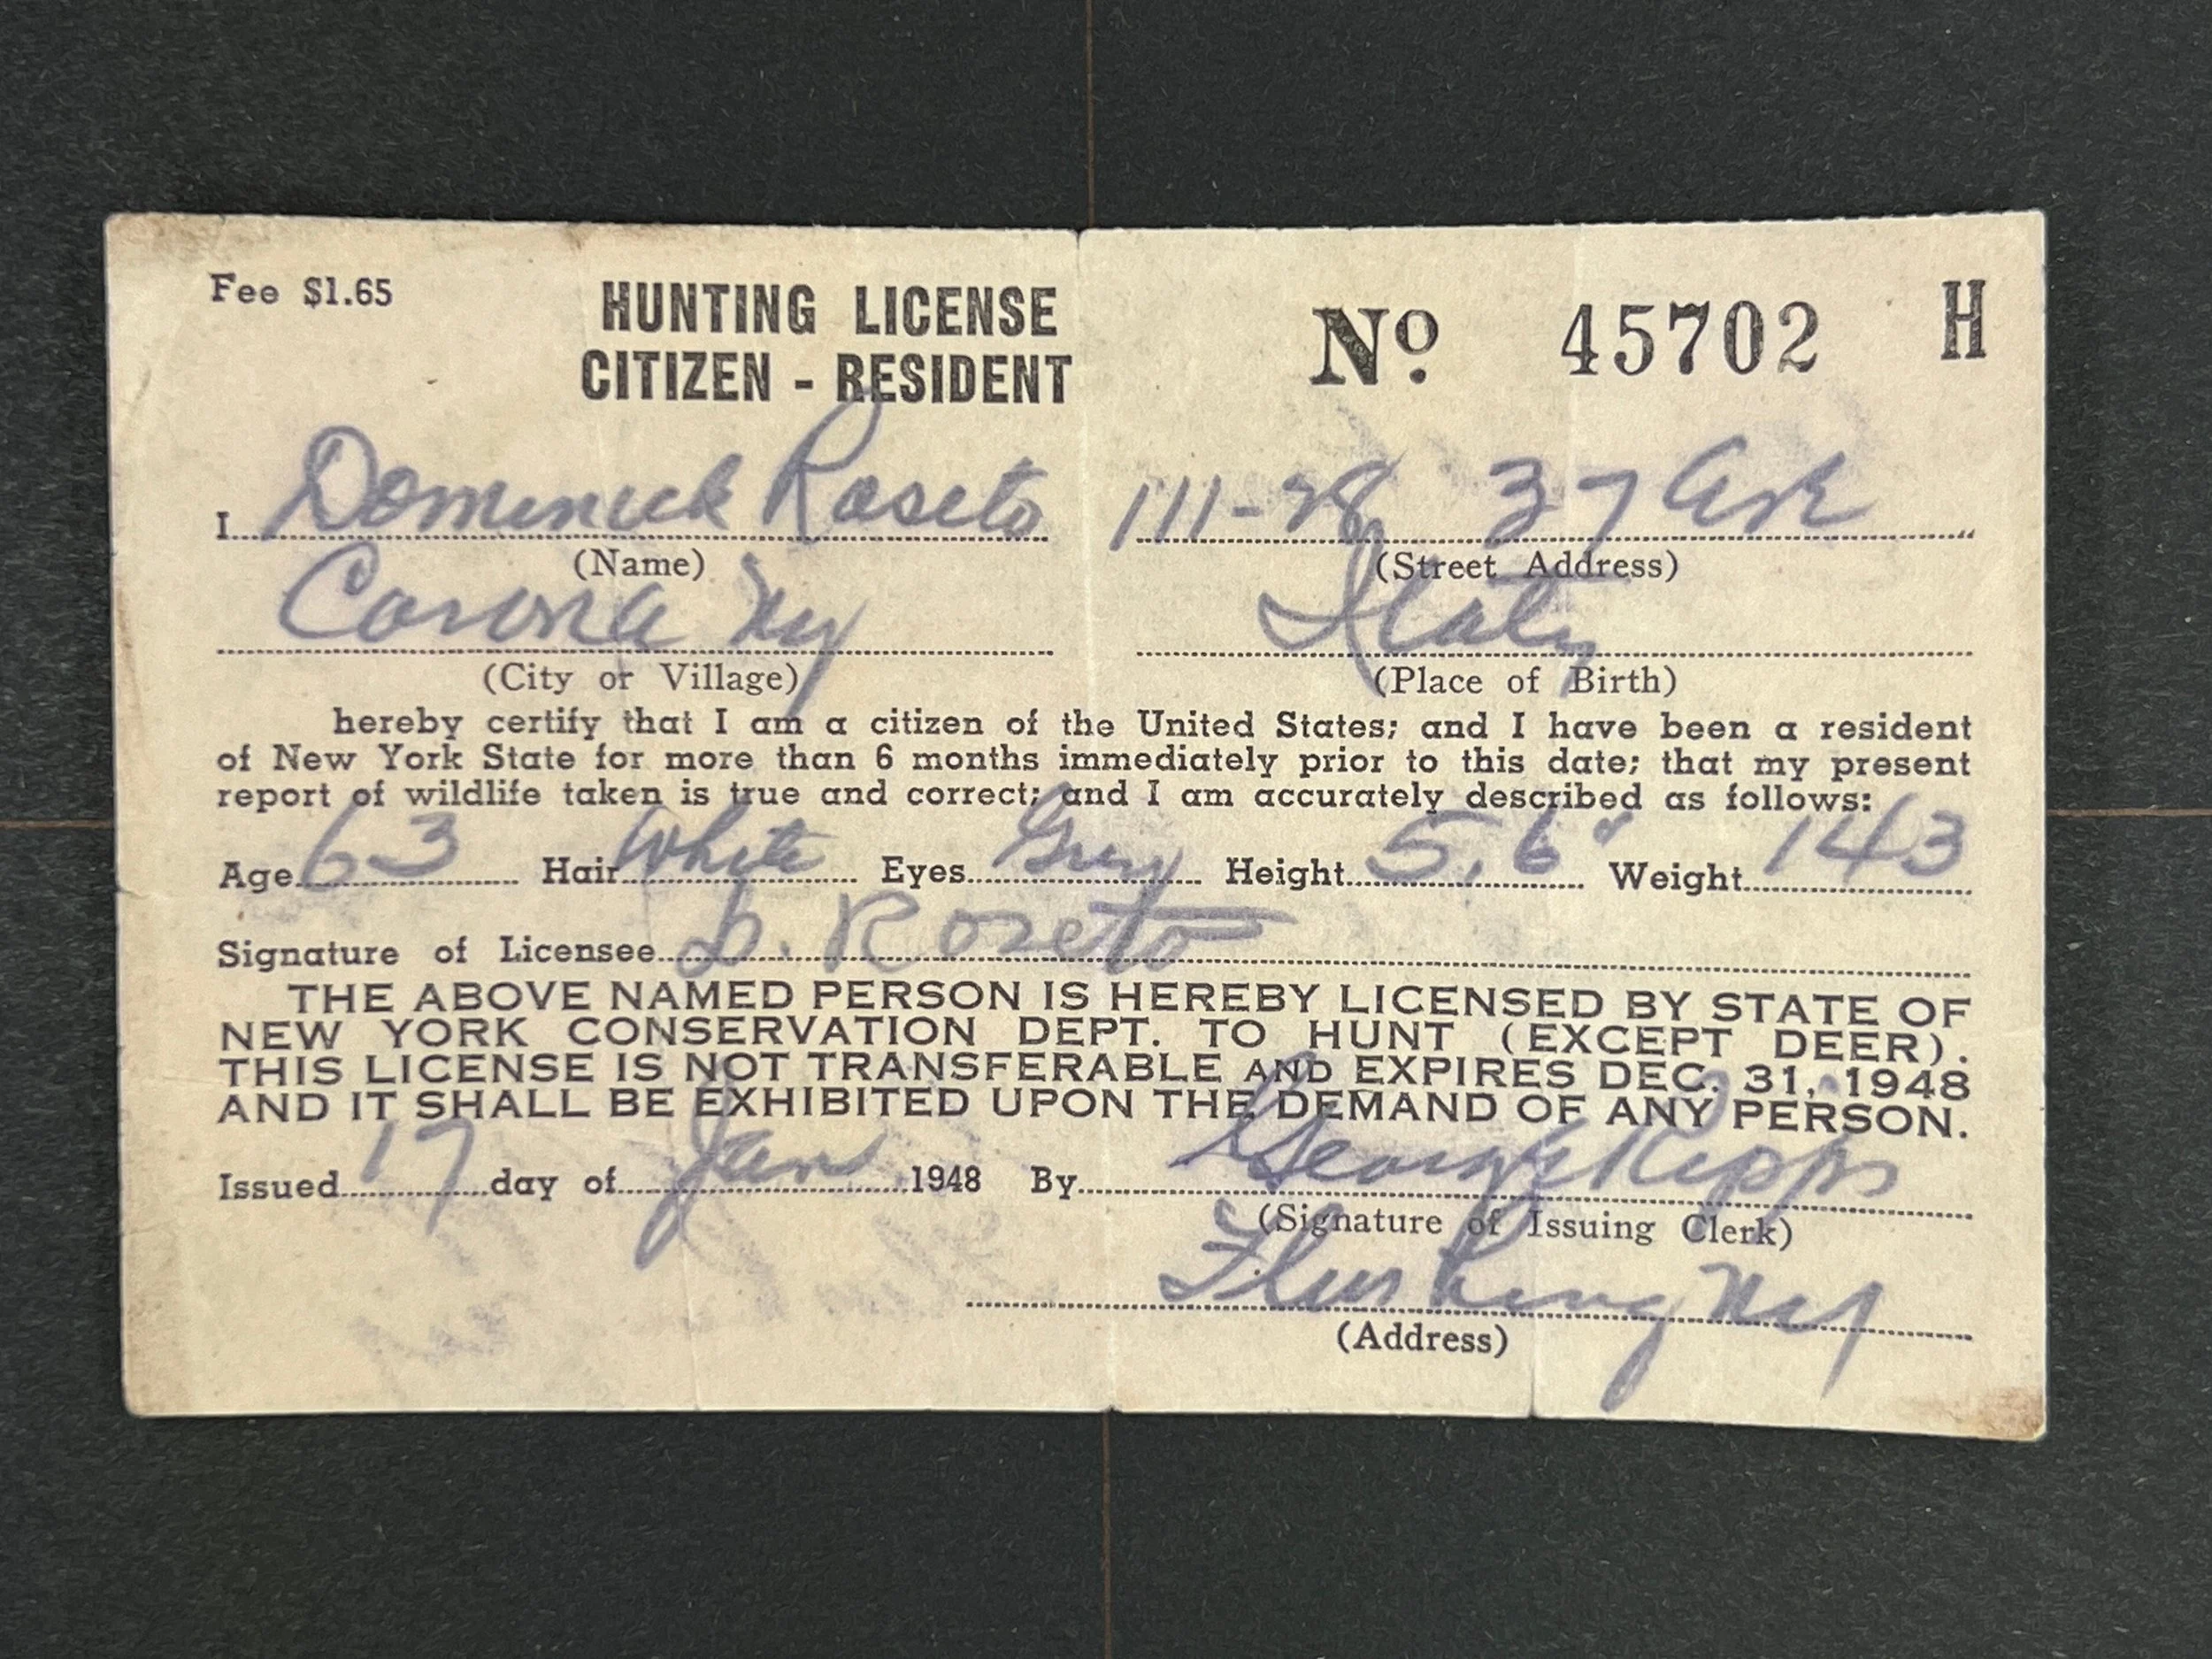 Fee $1.65
HUNTING LICENSE
CITIZEN - RESIDENT
No. 45702 H
I Dominick Roseto 111-28 37 Ave
(Name) (Street Address)
Corona Ny Italy
(City or Village) (Place of Birth)
hereby certify that I am a citizen of the United States; and I have been a resident
of New York State for more than 6 months immediately prior to this date; that my present
report of wildlife taken is true and correct; and I am accurately described as follows:
Age 63 Hair White Eyes Grey Height 5.6" Weight 143
Signature of Licensee D. Roseto
THE ABOVE NAMED PERSON IS HEREBY LICENSED BY STATE OF
NEW YORK CONSERVATION DEPT. TO HUNT (EXCEPT DEER).
THIS LICENSE IS NOT TRANSFERABLE AND EXPIRES DEC. 31, 1948
AND IT SHALL BE EXHIBITED UPON THE DEMAND OF ANY PERSON.
Issued 17 day of Jan 1948 By George Ripps
(Signature of Issuing Clerk)
Flushing Ny
(Address)